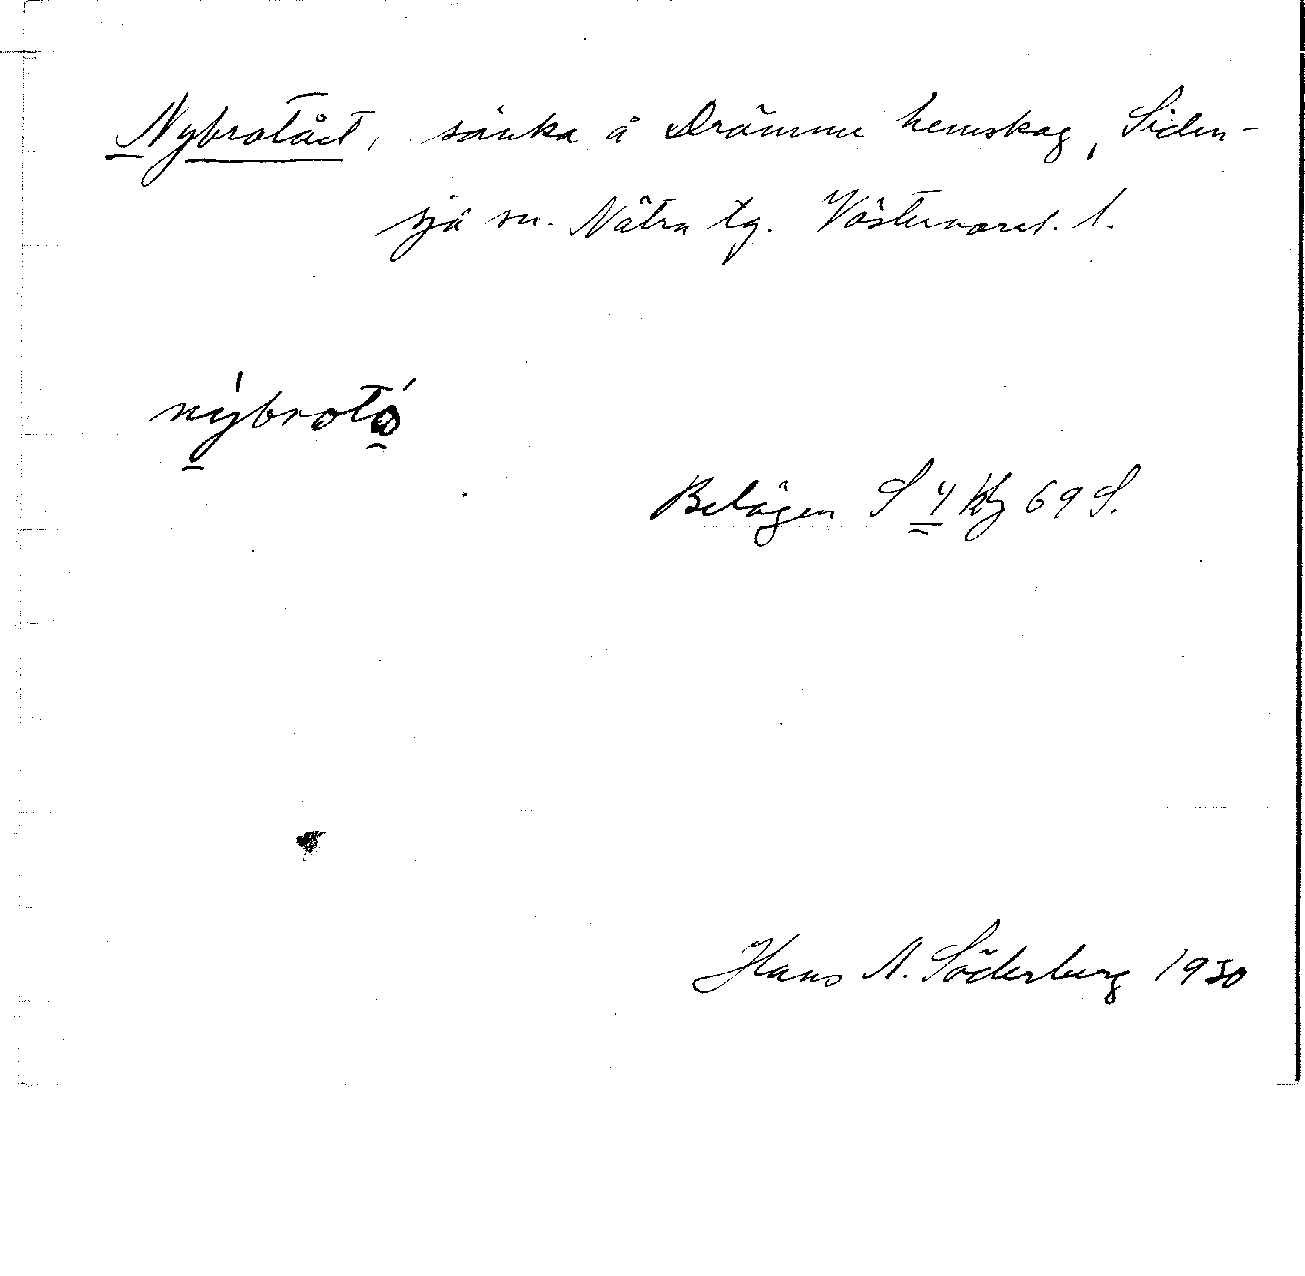 Nybrotået, sänka å Drömme hemskog, Siden-
sjö sn. Nätra tg. Västernorrl. l.
nýbrotó
Belägen S 4 kbg 69 S.
Hans A. Söderberg 1930